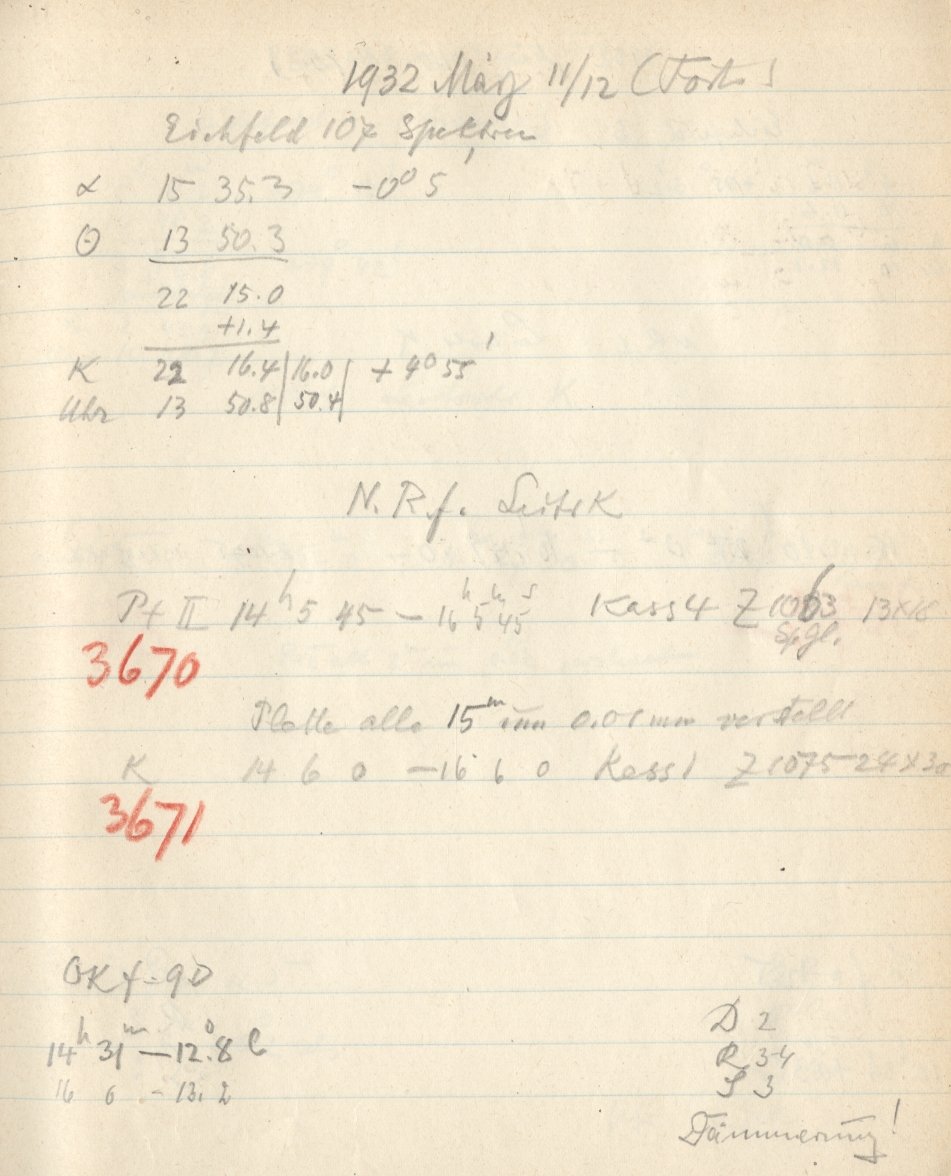 1932 März 11/12 (Forts.)
Eichfeld 107 Spektren
α 15 35.3 -0° 5'
Θ 13 50.3
22 15.0
+1.4
K 22 16.4 | 16.0 | + 4° 55'
Uhr 13 50.8 | 50.4 |
N. R. f. LeitrK
Pf II 14h 5 45 – 16h 5m 45s Kass 4 Z 1063 13×18
Spgl.
3670
Platte alle 15m um 0.01 mm verstellt
K 14 6 0 – 16 6 0 Kass 1 Z 1075 24×30
3671
OKf = 9D
14h 31m – 12.°8 C
16 6 - 13.2
D 2
R 3-4
S 3
Dämmerung!